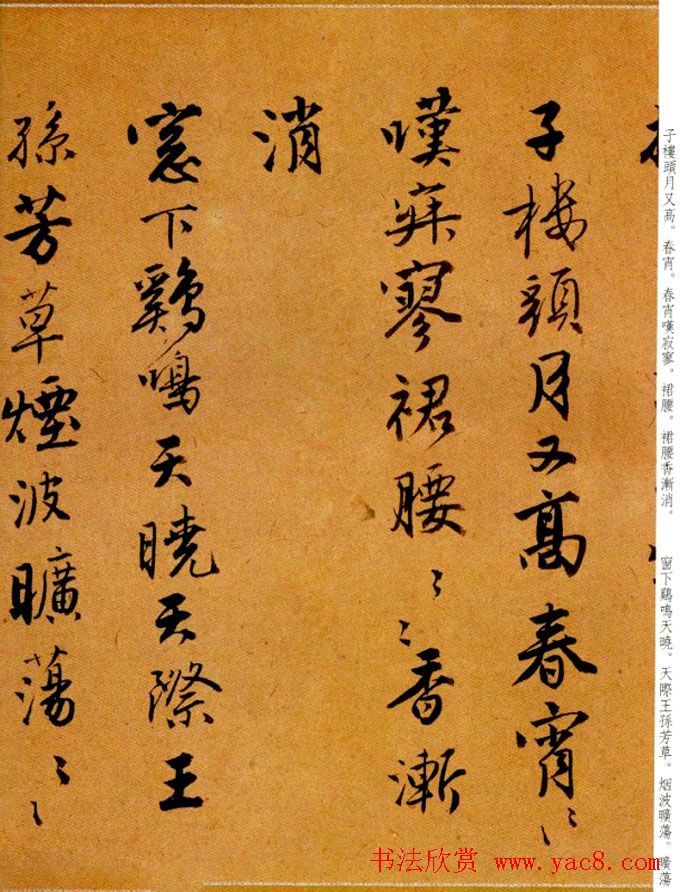 子楼頭月又高春宵〻〻
嘆寂寥裙腰〻〻香漸
消
窓下鷄鳴天曉天際王
孫芳草煙波曠蕩〻〻
子樓頭月又高。春宵。春宵嘆寂寥。裙腰。裙腰香漸消。 窗下鷄鳴天曉。天際王孫芳草。烟波曠蕩。曠蕩
书法欣赏 www.yac8.com